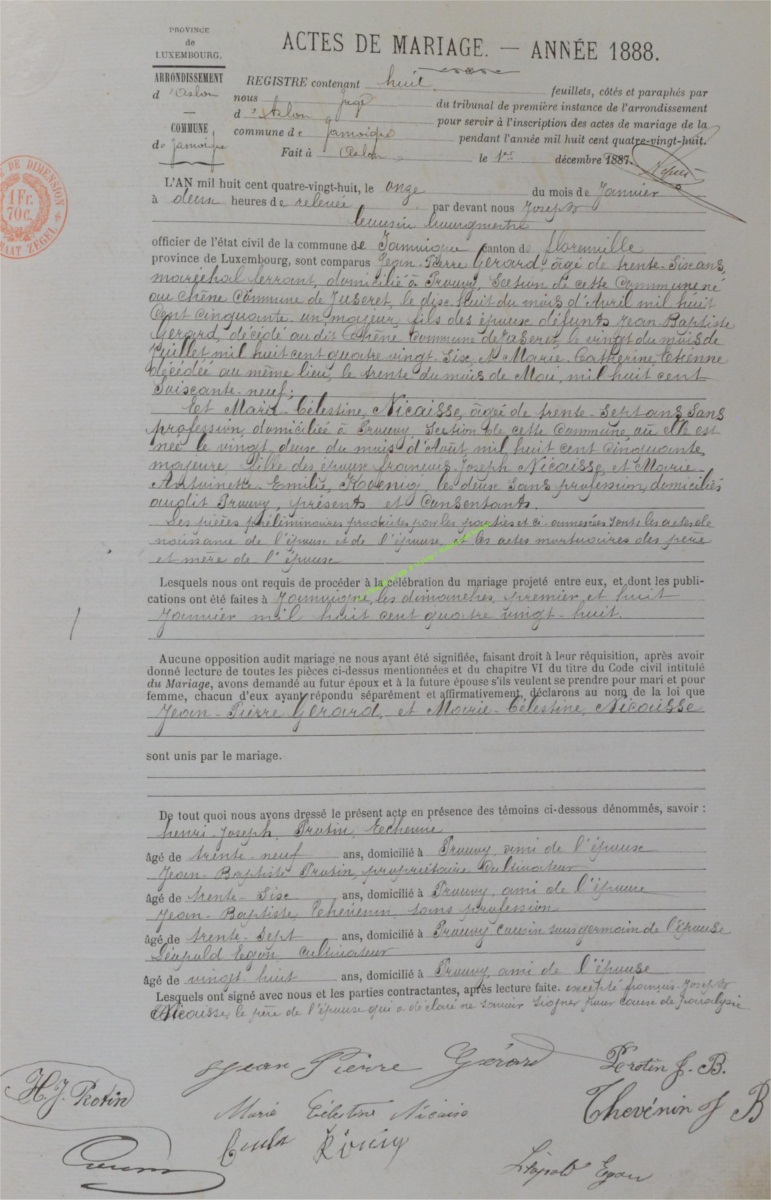 PROVINCE
de
LUXEMBOURG.
ARRONDISSEMENT
d'Arlon
COMMUNE
de Jamoigne
ACTES DE MARIAGE. — ANNÉE 1888.
REGISTRE contenant huit feuillets, côtés et paraphés par
nous juge du tribunal de première instance de l'arrondissement
d'Arlon pour servir à l'inscription des actes de mariage de la
commune de Jamoigne pendant l'année mil huit cent quatre-vingt-huit.
Fait à Arlon le 1er décembre 1887.
DE DIMENSION
1 Fr.
70 c.
ZEGEL
L'AN mil huit cent quatre-vingt-huit, le onze du mois de Janvier
à deux heures de relevée par devant nous Joseph
bourgmestre
officier de l'état civil de la commune de Jamoigne canton de florenville
province de Luxembourg, sont comparus Jean-Pierre Gerard, âgé de trente-six ans,
maréchal ferrant, domicilié à Prouvy, Section de cette Commune, né
au Chêne Commune de Juseret, le dix-huit du mois d'Avril mil huit
Cent Cinquante-un, majeur, fils des époux défunts Jean Baptiste
Gerard, décédé au dit Chêne Commune de Juseret, le vingt du mois de
Juillet mil huit cent quatre vingt-Six et Marie-Catherine
décédée au même lieu, le trente du mois de Mai, mil huit cent
Soixante-neuf;
Et Marie-Célestine, Nicaisse, âgé de trente-Sept ans, Sans
profession, domiciliée à Prouvy Section de cette Commune, où elle est
née le vingt-deux du mois d'Août, mil huit cent Cinquante
majeure, fille des époux françois-Joseph Nicaisse, et Marie-
Antoinette-Emilie, Koenig, les deux Sans profession, domiciliés
audit Prouvy, présents et Consentants.
Les pièces préliminaires produites par les parties et ci-annexées sont les actes de
naissance de l'époux et de l'épouse, et les actes mortuaires des père
et mère de l'époux
Lesquels nous ont requis de procéder à la célébration du mariage projeté entre eux, et dont les publi-
cations ont été faites à Jamoigne, les dimanches premier et huit
Janvier mil huit cent quatre vingt-huit.
Aucune opposition audit mariage ne nous ayant été signifiée, faisant droit à leur réquisition, après avoir
donné lecture de toutes les pièces ci-dessus mentionnées et du chapitre VI du titre du Code civil intitulé
du Mariage, avons demandé au futur époux et à la future épouse s'ils veulent se prendre pour mari et pour
femme, chacun d'eux ayant répondu séparément et affirmativement, déclarons au nom de la loi que
Jean-Pierre Gerard, et Marie-Célestine, Nicaisse
sont unis par le mariage.
De tout quoi nous avons dressé le présent acte en présence des témoins ci-dessous dénommés, savoir :
henri-Joseph, Protin,
âgé de trente-neuf ans, domicilié à Prouvy, ami de l'épouse
Jean-Baptiste Protin, propriétaire Cultivateur
âgé de trente-Six ans, domicilié à Prouvy, ami de l'épouse
Jean-Baptiste, Thévenin, sans profession
âgé de trente-Sept ans, domicilié à Prouvy cousin sous germain de l'épouse
Léopold Egon, cultivateur
âgé de vingt-huit ans, domicilié à Prouvy, ami de l'épouse
Lesquels ont signé avec nous et les parties contractantes, après lecture faite. excepté françois-Joseph
Nicaisse, le père de l'épouse qui a déclaré ne savoir Signer pour cause de paralysie
Jean Pierre Gérard
Protin J. B.
H. J. Protin
Marie Célestine Nicais
Thevénin J B
Léopold Egon